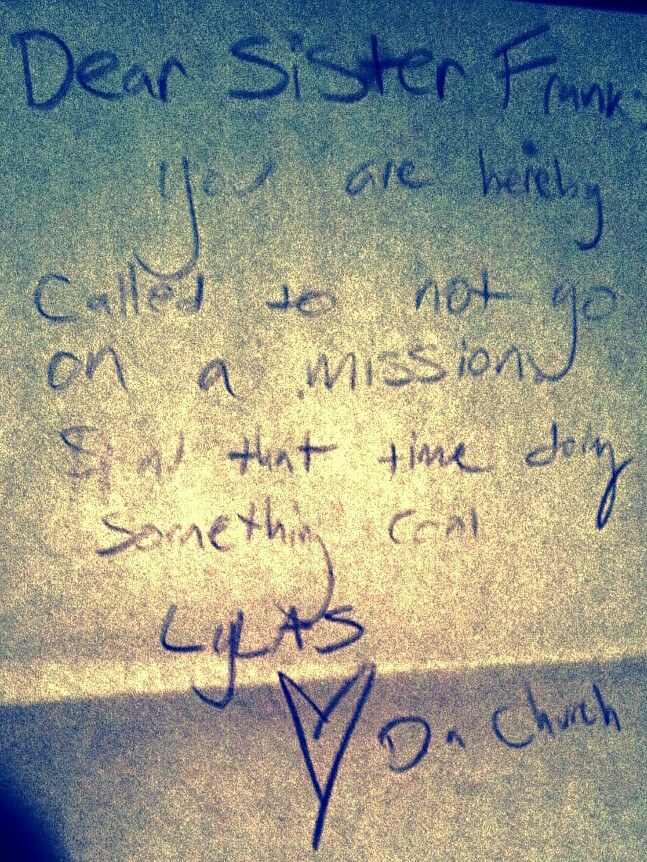 Dear Sister Frank:
you are hereby
Called to not go
on a mission
Spend that time doing
something cool
LYLAS
Da Church